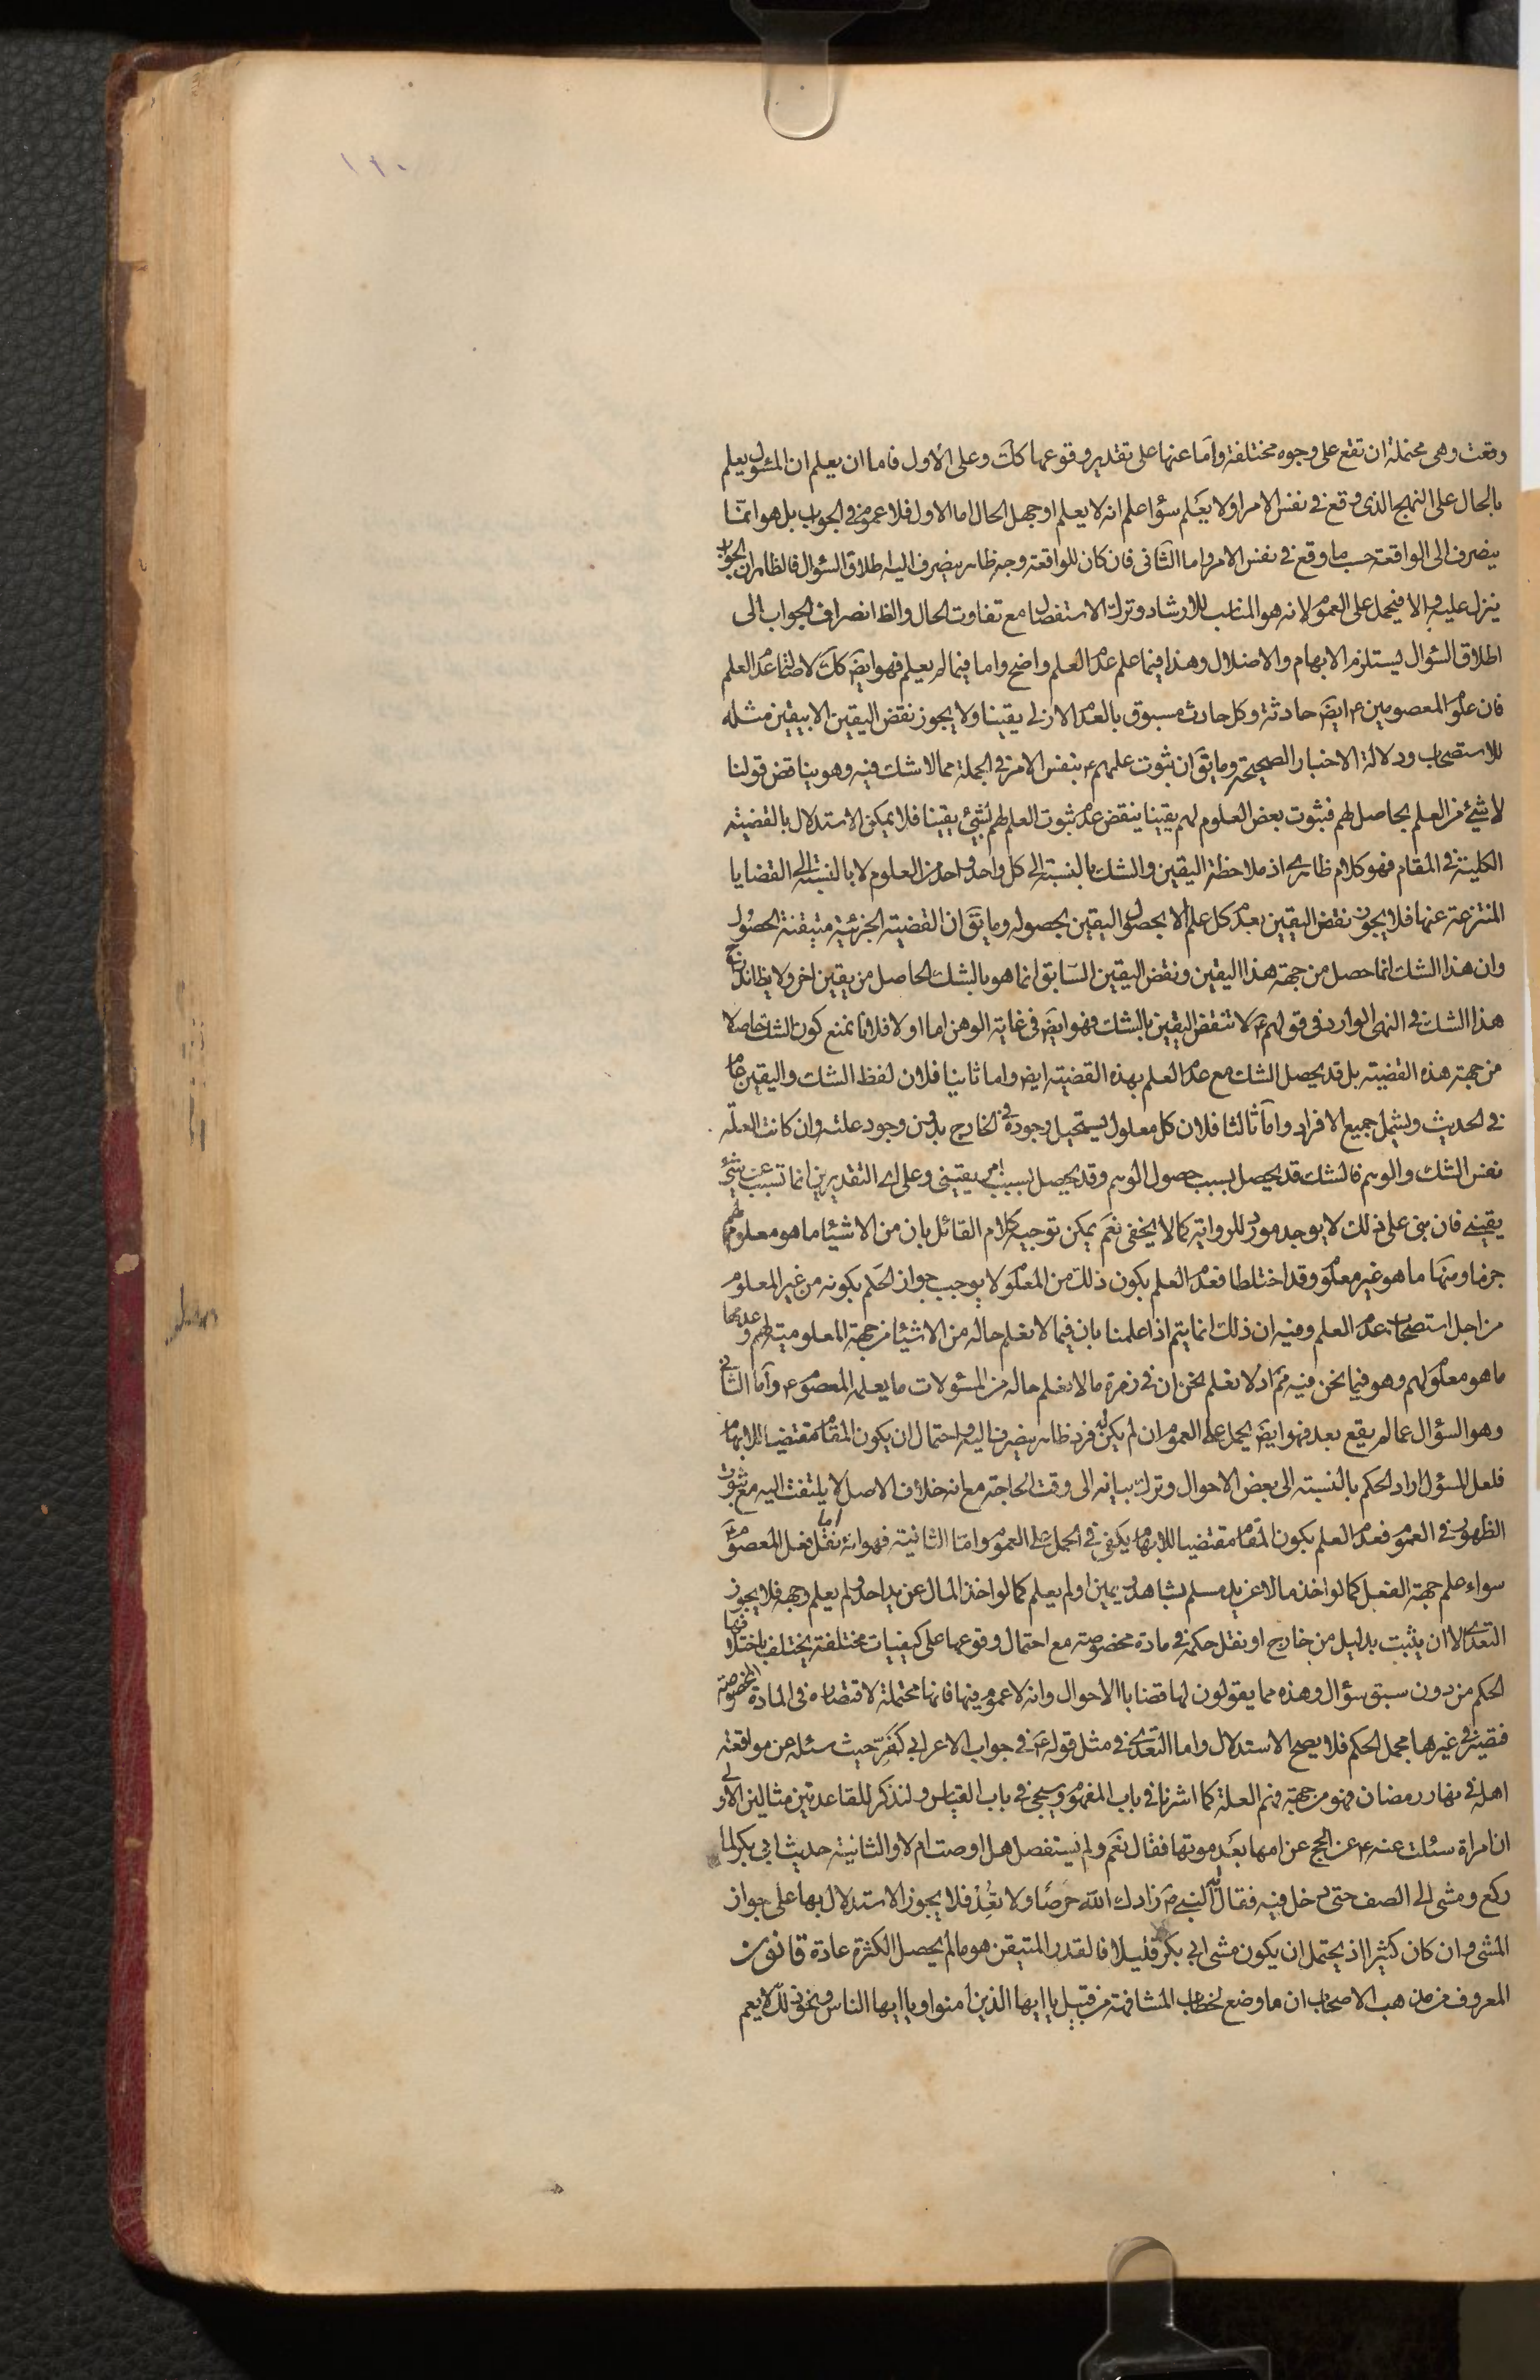 ١٢٠
وقعت وهى محتملة ان تقع على وجوه مختلفة واما عنها على تقدير وقوعها كك وعلى الاول فاما ان يعلم ان المسئول يعلم
بالحال على النهج الذى وقع فى نفس الامر او لا يعلم سواء علم انه لا يعلم او جهل الحال اما الاول فلا عموم فى الجواب بل هو انما
ينصرف الى الواقعة حسب ما وقع فى نفس الامر واما الثانى فان كان للواقعة وجه ظاهر ينصرف اليه اطلاق السئوال فالظاهر ان الجواب
ينزل عليه والا فيحمل على العموم لانه هو المناسب للارشاد وترك الاستفصال مع تفاوت الحال والظ انصراف الجواب الى
اطلاق السئوال ليستلزم الابهام والاضلال وهذا فيما علم عدم العلم واضح واما فيما لم يعلم فهو ايضَ كك لاصالة عدم العلم
فان علوم المعصومين ع ايضَ حادثة وكل حادث مسبوق بالعدم الازلى يقينا ولا يجوز نقض اليقين الا بيقين مثله
للاستصحاب ودلالة الاخبار الصحيحة وما يقَ ان ثبوت علمهم ع بنفس الامر فى الجملة مما لا شك فيه وهو يناقض قولنا
لا شئ من العلم بحاصل لهم فثبوت بعض العلوم لهم يقينا ينقض عدم ثبوت العلم لهم بشئ يقينا فلا يمكن الاستدلال بالقضية
الكلية فى المقام فهو كلام ظاهرى اذ ملاحظة اليقين والشك بالنسبة الى كل واحد واحد من العلوم لا بالنسبة الى القضايا
المنتزعة عنها فلا يجوز نقض اليقين بعدم كل علم الا بحصول اليقين بحصوله وما يقَ ان القضية الجزئية متيقنة الحصول
وان هذا الشك انما حصل من جهة هذا اليقين ونقض اليقين السابق انما هو بالشك الحاصل من يقين اخر ولا يظ اندراج
هذا الشك فى النهى الوارد فى قولهم ع لا تنقض اليقين بالشك فهو ايضَ فى غاية الوهن اما اولا فلانا نمنع كون الشك حاصلا
من جهة هذه القضية بل قد يحصل الشك مع عدم العلم بهذه القضية ايضَ واما ثانيا فلان لفظ الشك واليقين عام
فى الحديث ويشمل جميع الافراد واما ثالثا فلان كل معلول يستحيل وجوده فى الخارج بدون وجود علته وان كانت العلة
نفس الشك والوهم فالشك قد يحصل بسبب حصول الوهم وقد يحصل بسبب امر يقينى وعلى اى التقديرين انما تسبب عن شئ
يقينى فان بنى على ذلك لا يوجد مورد للرواية كما لا يخفى نعم يمكن توجيه كلام القائل بان من الاشياء ما هو معلوم لهم
جزما ومنها ما هو غير معلوم وقد اختلطا فعدم العلم بكون ذلك من المعلوم لا يوجب جواز الحكم بكونه من غير المعلوم
من اجل استصحاب عدم العلم وفيه ان ذلك انما يتم اذا علمنا بان فيما لا نعلم حاله من الاشياء من جهة المعلومية لهم وعدمها
ما هو معلوم لهم وهو فيما نحن فيه مم اذ لا نعلم نحن ان فى زمرة ما لا نعلم حاله من المسئولات ما يعلمه المعصوم ع واما الثانى
وهو السؤال عما لم يقع بعد فهو ايضَ يحمل على العموم ان لم يكن له فرد ظاهر ينصرف اليه واحتمال ان يكون المقام مقتضيا للابهام
فلعل المسؤل اراد الحكم بالنسبة الى بعض الاحوال وترك بيانه الى وقت الحاجة مع انه خلاف الاصل لا يلتفت اليه مع ثبوت
الظهور فى العموم فعدم العلم بكون المقام مقتضيا للابهام يكفى فى الحمل على العموم واما الثانية فهو انه اما نقل فعل المعصوم ع
سواء علم جهة الفعل كما لو اخذ مالا عن يد مسلم بشاهد ويمين او لم يعلم كما لو اخذ المال عن يد احد ولم يعلم وجهه فلا يجوز
التعدى الا ان يثبت بدليل من خارج او نقل حكمه فى مادة مخصوصة مع احتمال وقوعها على كيفيات مختلفة يختلف باختلافها
الحكم من دون سبق سؤال وهذه مما يقولون لها قضايا الاحوال وانه لا عموم فيها فانها محتملة لاقتصاره فى المادة المخصوصة
فيبقى فى غيرها مجمل الحكم فلا يصح الاستدلال واما التعدى فى مثل قوله ع فى جواب الاعرابى كَفِّر حيث سئله عن مواقعة
اهله فى نهار رمضان فهو من جهة فهم العلة كما اشرنا فى باب المفهوم وسيجئ فى باب القياس ولنذكر للقاعدتين مثالين الاولى
ان امراة سئلت عنه ع عن الحج عن امها بعد موتها فقال نعم ولم يستفصل هل اوصت ام لا والثانية حديث ابى بكر لما
ركع ومشى الى الصف حتى دخل فيه فقال له النبى ص زادك الله حرصًا ولا تعُد فلا يجوز الاستدلال بها على جواز
المشى وان كان كثيرا اذ يحتمل ان يكون مشى ابى بكر قليلا فالقدر المتيقن هو ما لم يحصل الكثرة عادة قانون
المعروف من مذهب الاصحاب ان ما وضع لخطاب المشافهة من قبيل يا ايها الذين امنوا ويا ايها الناس ونحو ذلك لا يعم